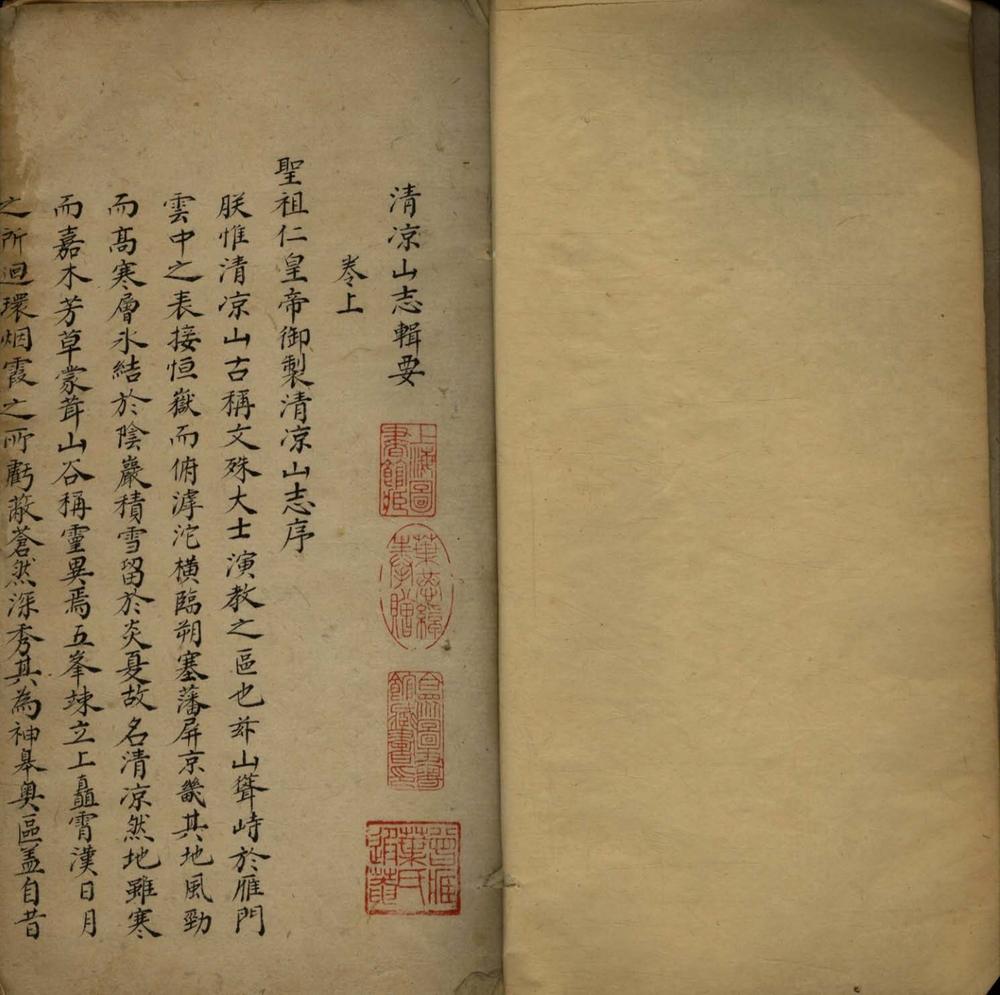 清凉山志輯要
卷上
聖祖仁皇帝御製清凉山志序
朕惟清凉山古稱文殊大士演教之區也茲山聳峙於雁門
雲中之表接恒嶽而俯滹沱橫臨朔塞藩屏京畿其地風勁
而高寒層氷結於陰巖積雪留於炎夏故名清凉然地雖寒
而嘉木芳草蒙茸山谷稱靈異焉五峯竦立上矗霄漢日月
之所迴環烟霞之所虧蔽蒼然深秀其為神皋奧區盖自昔
上海圖
書館藏
葉景葵